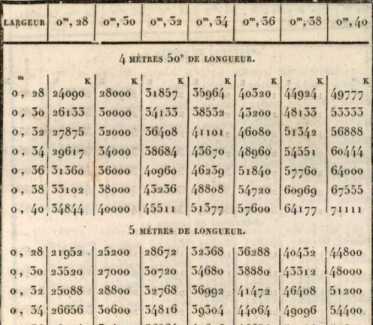 LARGEUR 0ᵐ, 28 0ᵐ, 30 0ᵐ, 32 0ᵐ, 34 0ᵐ, 36 0ᵐ, 38 0ᵐ, 40
4 MÈTRES 50ᶜ DE LONGUEUR.
m K K K K K K K
0, 28 24090 28000 31857 35964 40320 44924 49777
0, 30 26133 30000 34133 38532 43200 48133 53333
0, 32 27875 32000 36408 41101 46080 51342 56888
0, 34 29617 34000 38684 43670 48960 54551 60444
0, 36 31360 36000 40960 46239 51840 57760 64000
0, 38 33102 38000 43236 48808 54720 60969 67555
0, 40 34844 40000 45511 51377 57600 64177 71111
5 MÈTRES DE LONGUEUR.
0, 28 21952 25200 28672 32368 36288 40432 44800
0, 30 23520 27000 30720 34680 38880 43312 48000
0, 32 25088 28800 32768 36992 41472 46408 51200
0, 34 26656 30600 34816 39304 44064 49096 54400